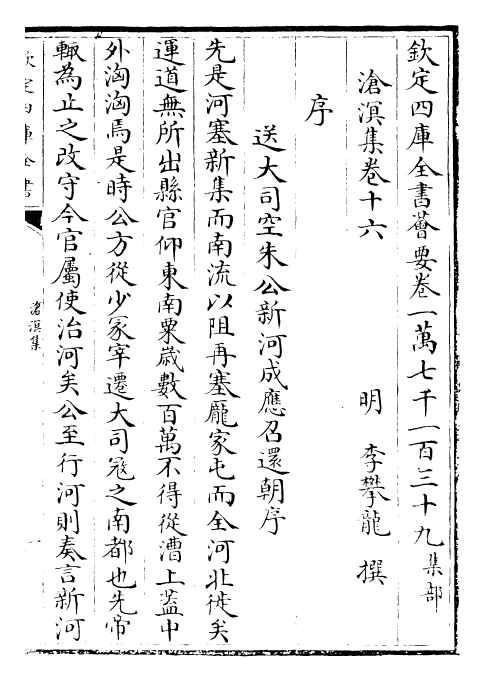 欽定四庫全書薈要卷一萬七千一百三十九集部
滄溟集卷十六　明　李攀龍　撰
序
送大司空朱公新河成應召還朝序
先是河塞新集而南流以阻再塞龎家屯而全河北徙矣
運道無所出縣官仰東南粟歳數百萬不得從漕上蓋中
外洶洶焉是時公方從少冡宰遷大司寇之南都也先帝
輙為止之改守今官屬使治河矣公至行河則奏言新河
欽定四庫全書
滄溟集
一